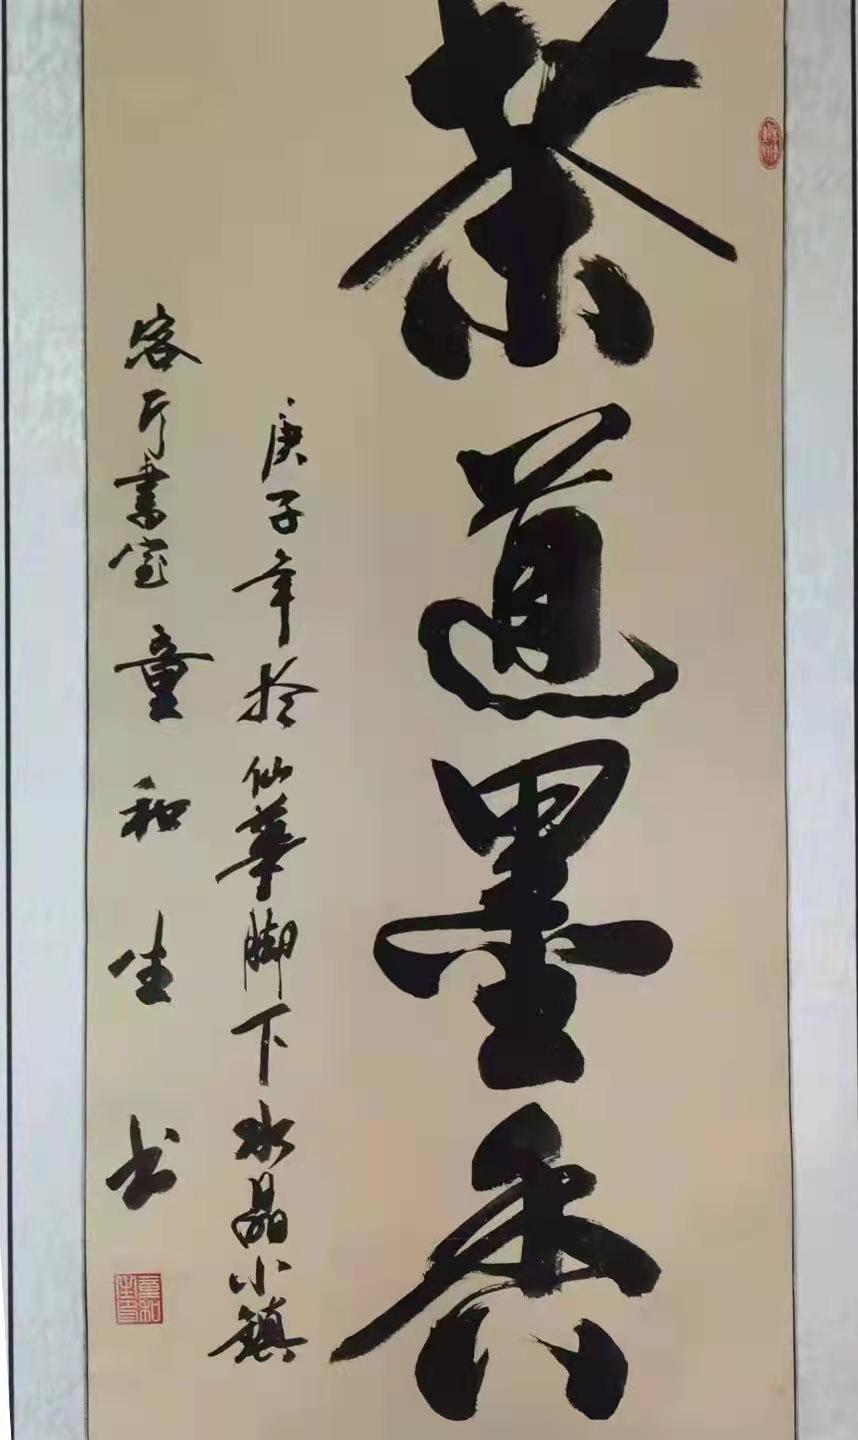 茶道墨香
庚子年於仙華脚下水晶小鎮
客厅書室童和生书
童和生印